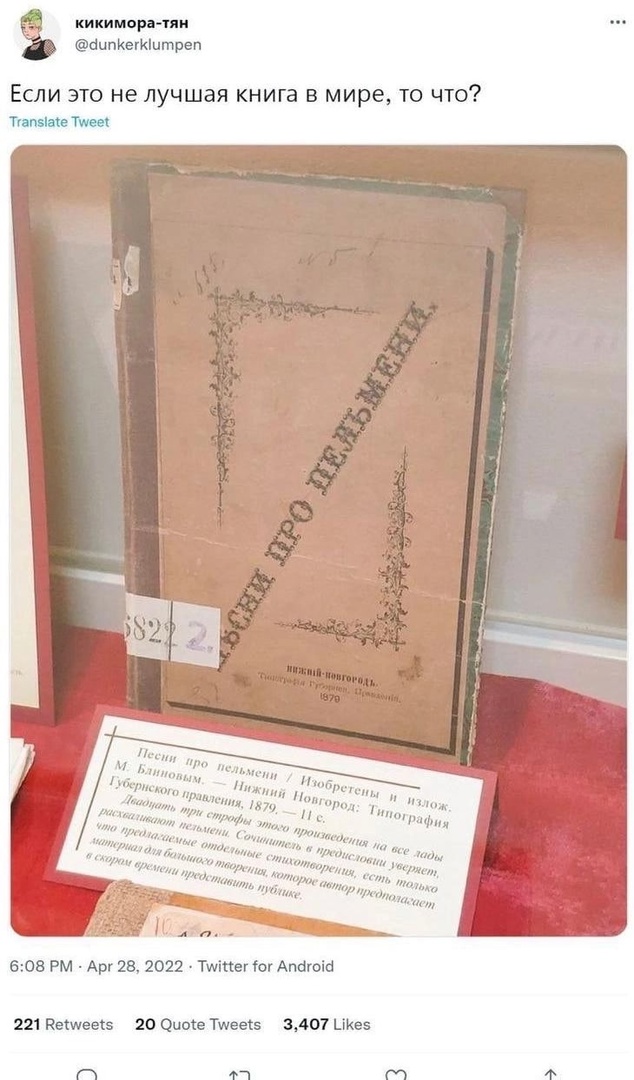 кикимора-тян
@dunkerklumpen
Если это не лучшая книга в мире, то что?
Translate Tweet
ПРО ПЕЛЬМЕНИ.
5822 2.
НИЖНІЙ-НОВГОРОДЪ.
Типографія Губернск. Правленія.
1879
Песни про пельмени / Изобретены и излож.
М. Блиновым. — Нижний Новгород: Типография
Губернского правления, 1879. — 11 с.
Двадцать три строфы этого произведения на все лады
расхваливают пельмени. Сочинитель в предисловии уверяет,
что предлагаемые отдельные стихотворения, есть только
материал для большого творения, которое автор предполагает
в скором времени представить публике.
6:08 PM · Apr 28, 2022 · Twitter for Android
221 Retweets 20 Quote Tweets 3,407 Likes